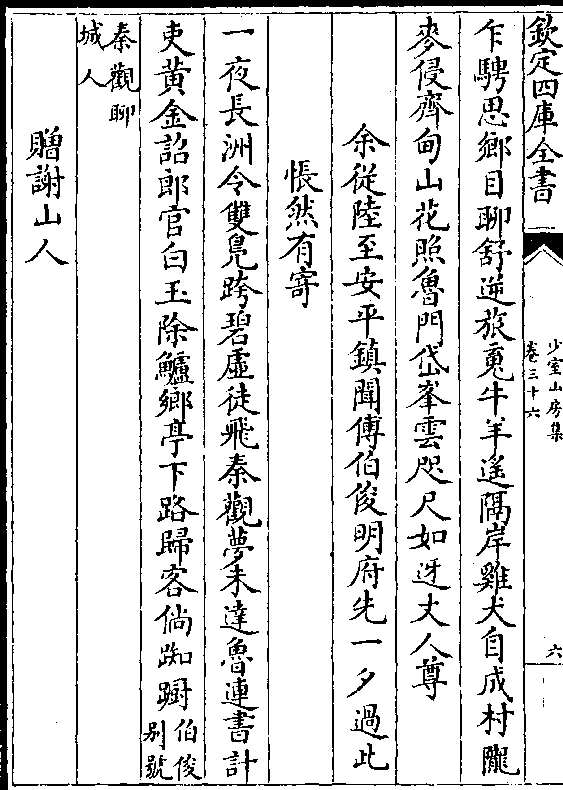 欽定四庫全書
少室山房集
卷三十六
六
乍騁思鄉目聊舒逆旅䰟牛羊遙隔岸雞犬自成村隴
麥侵齊甸山花照魯門岱峯雲咫尺如迓丈人尊
余從陸至安平鎮聞傅伯俊明府先一夕過此
悵然有寄
一夜長洲令雙鳧跨碧虛徒飛秦觀夢未達魯連書計
吏黄金詔郎官白玉除鱸鄉亭下路歸客倘踟躕伯俊
别號
秦觀聊
城人
贈謝山人